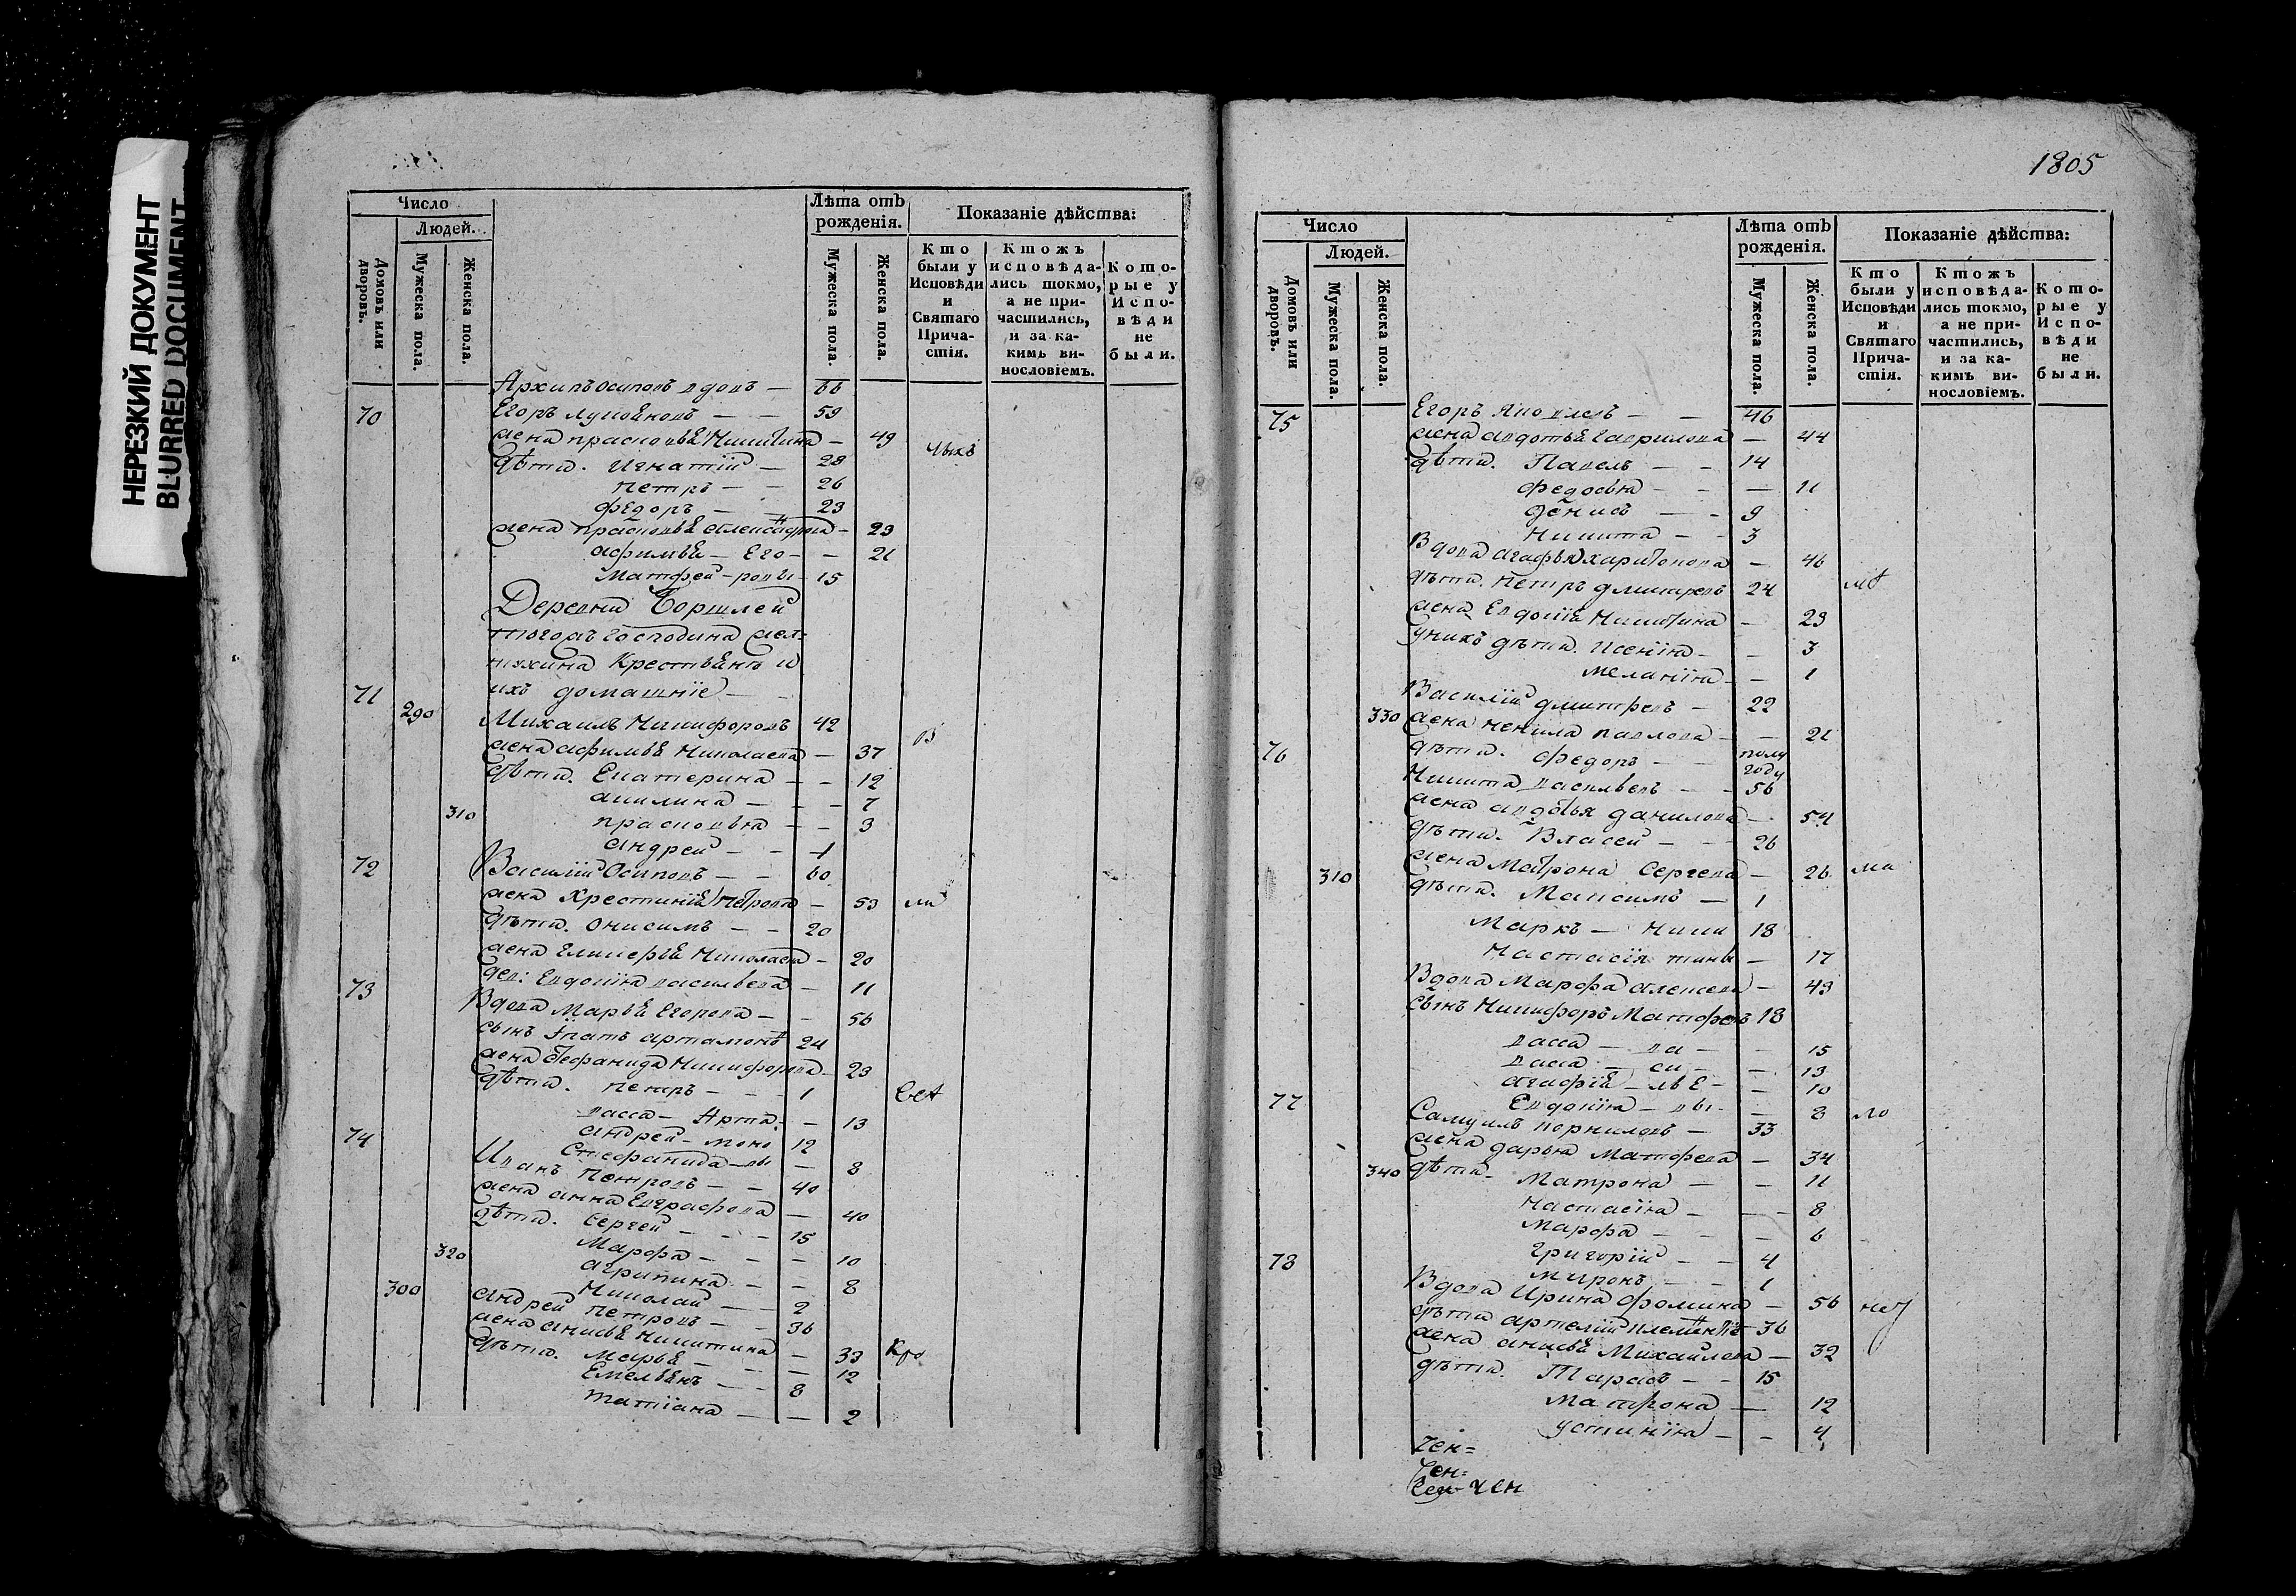 НЕРЕЗКИЙ ДОКУМЕНТ
BLURRED DOCUMENT
Число
Людей.
Домовъ или дворовъ.
Мужеска пола.
Женска пола.
Лѣта отъ рожденія.
Мужеска пола.
Женска пола.
Показаніе дѣйства:
Кто были у Исповѣди и Святаго Причастія.
Ктожъ исповѣдались токмо, а не причастились, и за какимъ винословіемъ.
Которые у Исповѣди не были.
Архипъ Осиповъ вдовъ — 66
70 Егоръ — — 59
жена прасковья Никитина — 49
дѣти. Игнатій — 28
петръ — — 26
федоръ — — 23
жена прасковья — 23
афимья — Его — — 21
Матфей — ровы — 15
Деревни
тогожъ Господина
Крестьянъ и
ихъ домашніе —
71 290 Михаилъ Никифоровъ 42
жена афимья Николаева — 37
дѣти. Екатерина — — 12
акилина — — 7
310 прасковья — — 3
андрей — — 1
72 Василій Осиповъ — — 60
жена Хрестинія Петрова — 53
дѣти. Онисимъ — — 20
жена Николаева — 20
дев: Евдокія васильева — 11
73 Вдова Марья Егорова — — 56
сынъ Ипатъ артамоновъ 24
жена Стефанида Никифорова — 23
дѣти. петръ — — 1
васса — Арта — — 13
андрей — моно 12
Стефанида — вы — 8
74 Иванъ Петровъ — — 40
жена анна Евграфова — 40
дѣти. Сергей — — 15
Марфа — — — 10
320 агрипина — — 8
Николай — — 2
300 андрей петровъ — — 36
жена анисья никитина — 33
дѣти. Марья — — — 12
Емельянъ — — 8
татіана — — 2
1805
Число
Людей.
Домовъ или дворовъ.
Мужеска пола.
Женска пола.
Лѣта отъ рожденія.
Мужеска пола.
Женска пола.
Показаніе дѣйства:
Кто были у Исповѣди и Святаго Причастія.
Ктожъ исповѣдались токмо, а не причастились, и за какимъ винословіемъ.
Которые у Исповѣди не были.
75 Егоръ Яковлевъ — — 46
жена авдотья Гаврилова — 44
дѣти. Павелъ — — 14
федосья — — — 11
денисъ — — 9
Никита — — 3
Вдова агафья харитонова — 46
дѣти. петръ дмитревъ 24
жена Евдокія Никитина — 23
у нихъ дѣти. Ксенія — — 3
меланія — — 1
Василій дмитревъ — 22
330 жена ненила павлова — — 21
дѣти. федоръ — — полу году
76 Никита васильевъ — — 56
жена авдотья данилова — 54
дѣти. Власей — — 26
жена Матрона Сергеева — 26
310 дѣти. Максимъ — 1
Маркъ — Ники 18
Настасія тины — 17
Вдова Марфа алексеева — 43
сынъ Никифоръ Матфеевъ 18
васса — ва — — 15
васса — си — — 13
агафія — лье — — 10
Евдокія — вы — — 8
77 Самуилъ корниловъ — 33
жена дарья Матфеева — 34
340 дѣти. Матрона — — 11
Настасія — — 8
Марфа — — — 6
григорій — — 4
миронъ — — 1
78 Вдова Ирина фомина — 56
дѣти артемій 36
жена анисья Михайлова — 32
дѣти. Тарасъ — — 15
матрона — 12
устинія — — 4